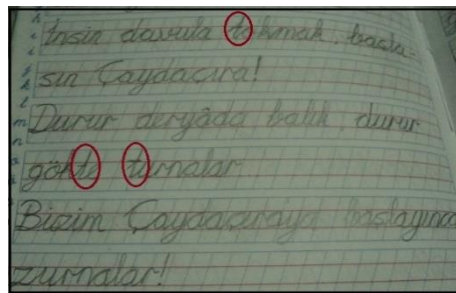 İnsin davula tokmak, başla-
sın Çaydaçıra!
Durur deryâda balık, durur
gökte turnalar
Bizim Çaydaçıraya başlayınca
zurnalar!